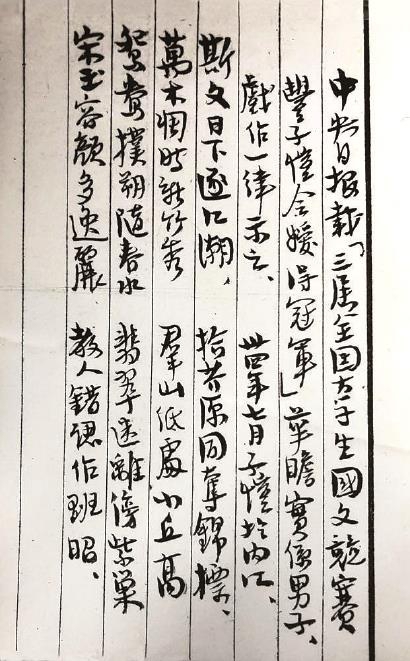 中央日报載「三届全国大学生國文競賽
豐子愷令嬡得冠軍」華瞻實係男子、
戲作一律示之、 卅四年七月子愷於内江、
斯文日下逐江潮、 拾芥原同奪錦標、
萬木凋時新竹秀 羣山低處小丘高
鴛鴦撲朔随春水 翡翠迷離傍紫巢
宋玉容顏多逸麗、 教人錯認作班昭、